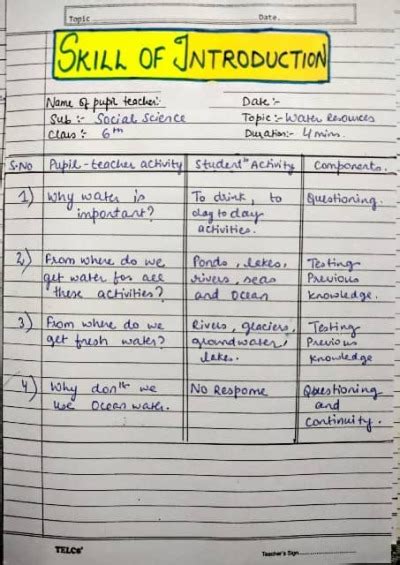 Topic Date
SKILL OF INTRODUCTION
Name of pupil teacher:- Date :-
Sub :- Social Science Topic :- Water Resources
Class :- 6th Duration:- 4 mins.
S.No Pupil-teacher activity Student Activity Components.
1) Why water is To drink, to Questioning.
important? day to day
activities.
2) From where do we Ponds, lakes, Testing
get water for all rivers, seas Previous
these activities? and ocean knowledge.
3) From where do we Rivers, glaciers, Testing
get fresh water? groundwater, Previous
lakes. knowledge
4) Why don't we No Response Questioning
use ocean water. and
continuity.
TELCS' Teacher's Sign